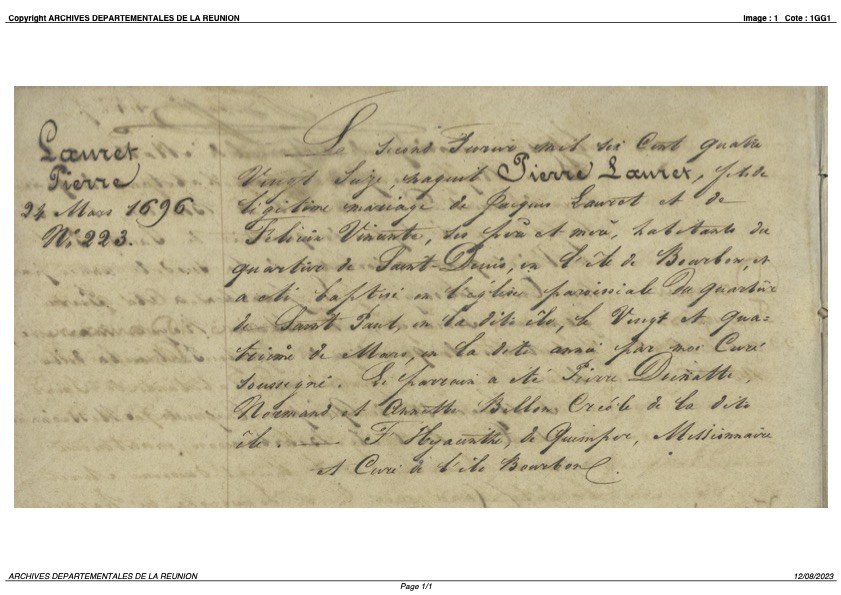 Copyright ARCHIVES DEPARTEMENTALES DE LA REUNION
Image : 1 Cote : 1GG1
Lauret
Pierre
24 Mars 1696
N.º 223.
Le second Fevrier mil six Cent quatre
Vingt Seize, naquit Pierre Lauret, fils de
légitime mariage de Jacques Lauret et de
Felicie Vincente, ses père et mère, habitants du
quartier de Saint-Denis, en l'île de Bourbon, et
a été baptisé en l'église paroissiale du quartier
de Saint Paul, en la dite île, le Vingt et qua-
trième de Mars, en la dite année par moi Curé
soussigné. Le parrain a été Pierre
Normand et Annette Bellon Créole de la dite
île. F. Hyacinthe, de Quimper, Missionnaire
et Curé de l'île Bourbon.
ARCHIVES DEPARTEMENTALES DE LA REUNION
12/08/2023
Page 1/1